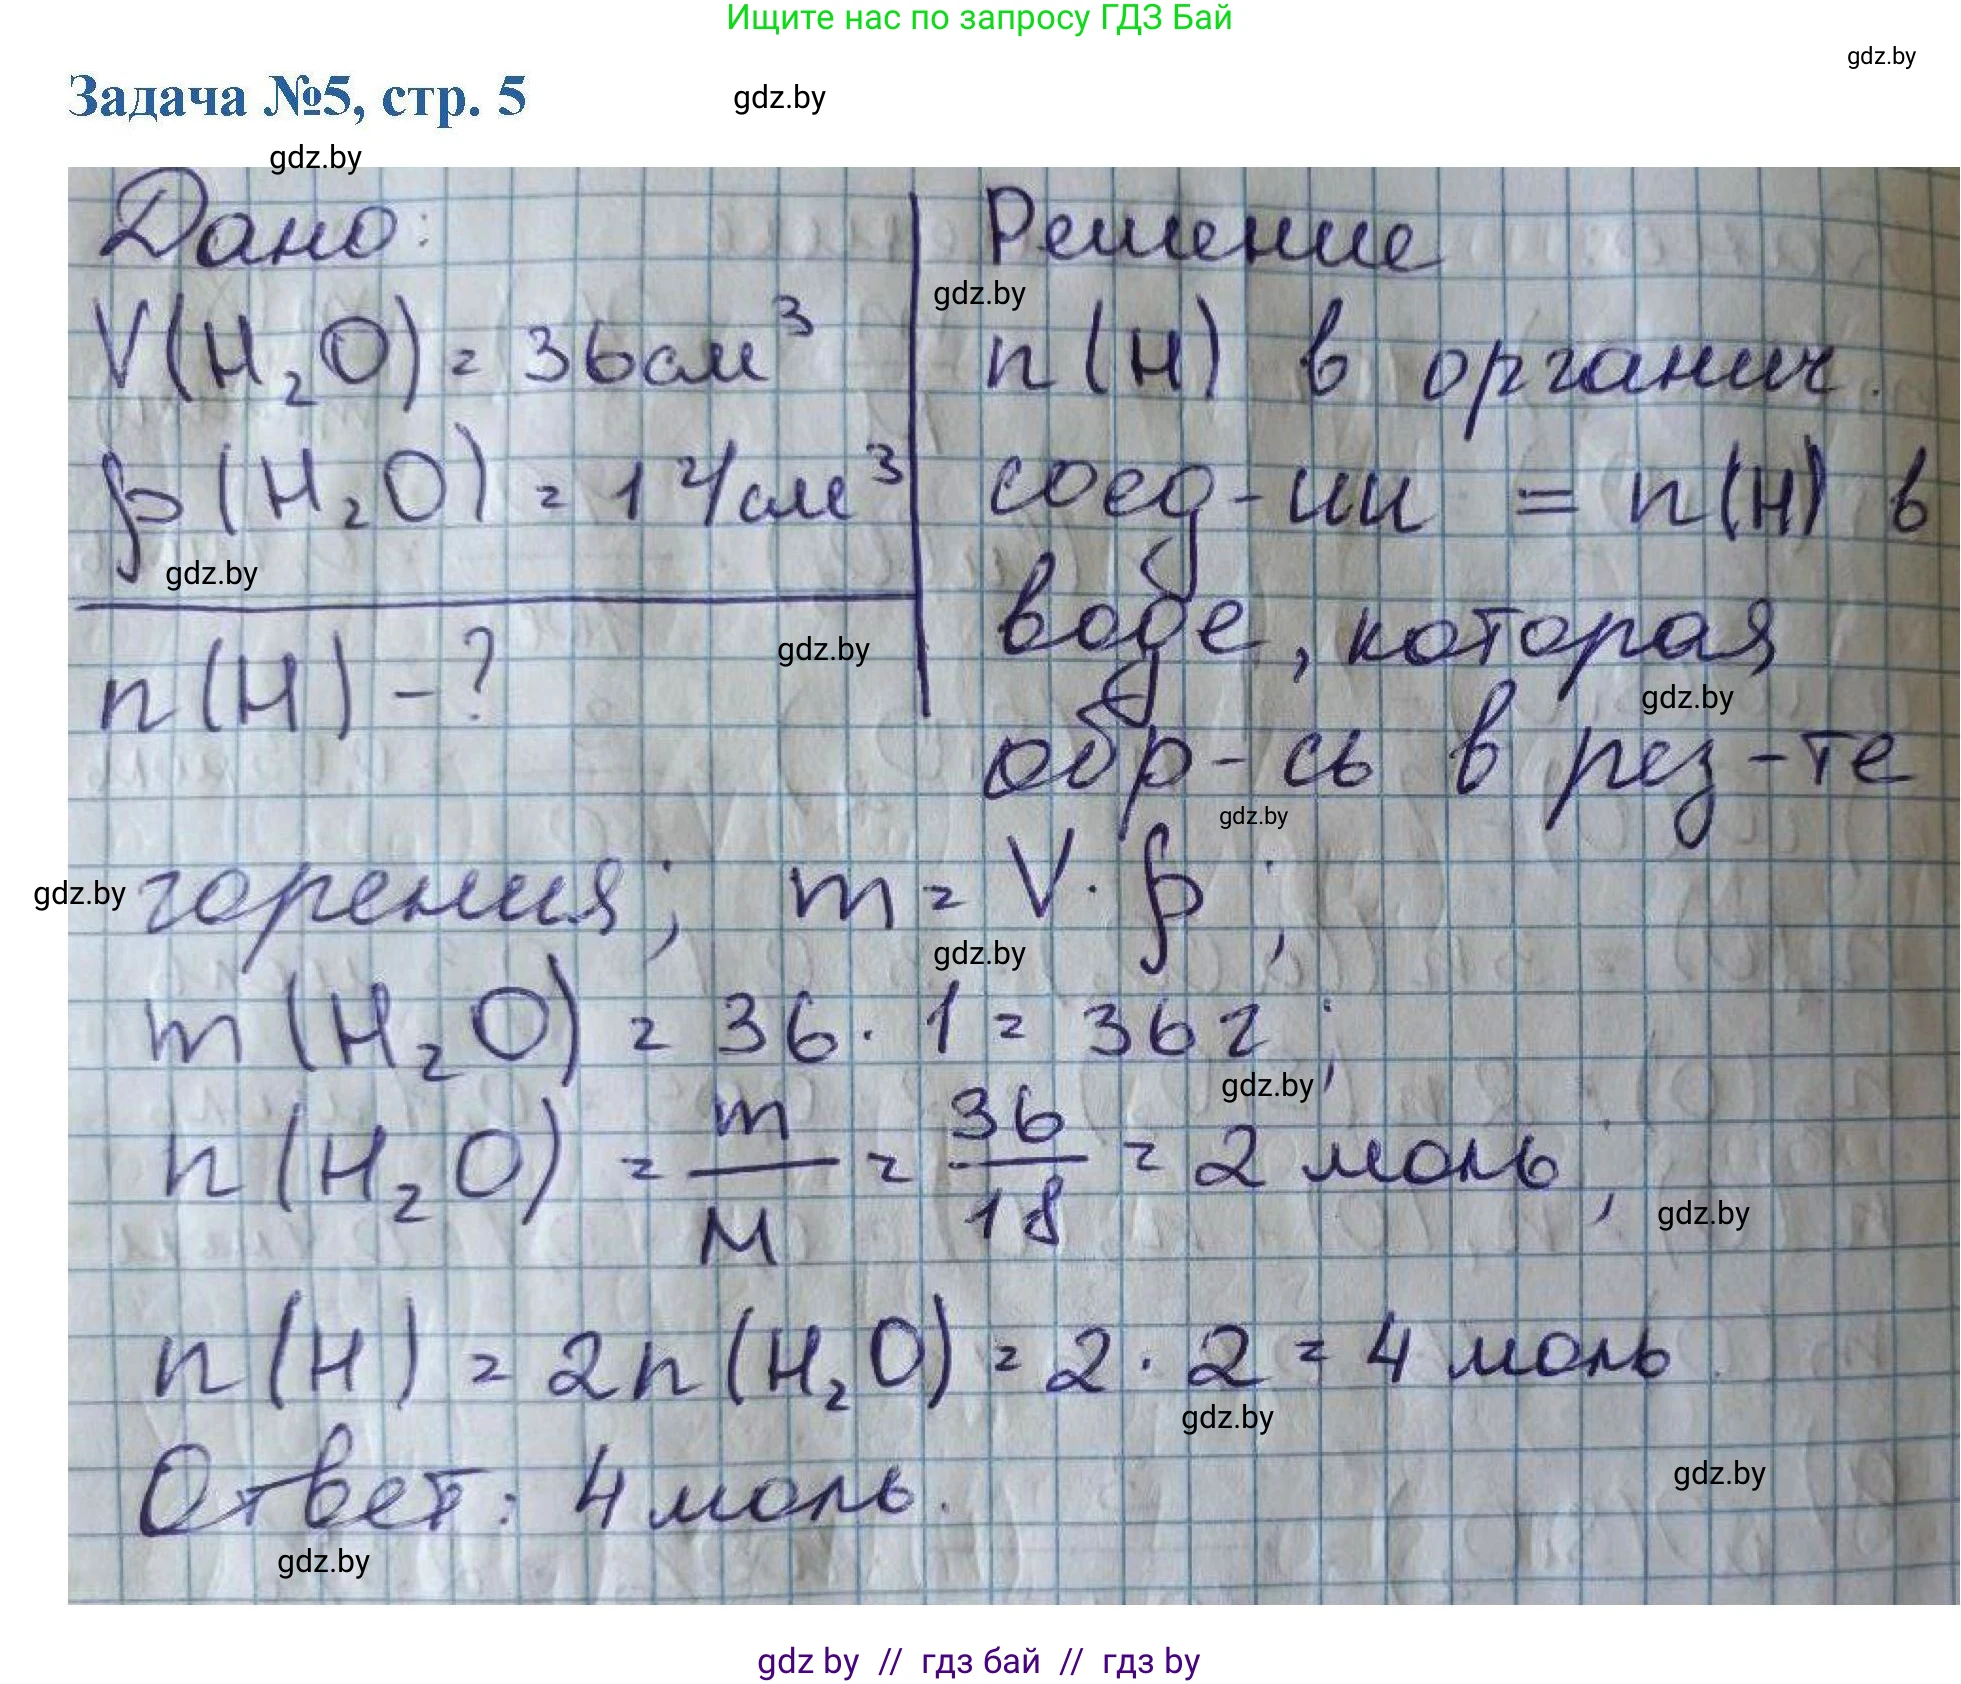 Ищите нас по запросу ГДЗ Бай
gdz.by
Задача №5, стр. 5
gdz.by
gdz.by
Дано:
V(H₂O) = 36см³
ρ(H₂O) = 1 г/см³
gdz.by
n(H) - ?
gdz.by
Решение
gdz.by
n(H) в органич.
соед-ии = n(H) в
воде, которая
gdz.by
обр-сь в рез-те
gdz.by
gdz.by
горения; m = V · ρ;
gdz.by
m(H₂O) = 36 · 1 = 36 г;
gdz.by
n(H₂O) = m/M = 36/18 = 2 моль;
gdz.by
n(H) = 2n(H₂O) = 2 · 2 = 4 моль.
gdz.by
Ответ: 4 моль.
gdz.by
gdz.by
gdz by // гдз бай // гдз by